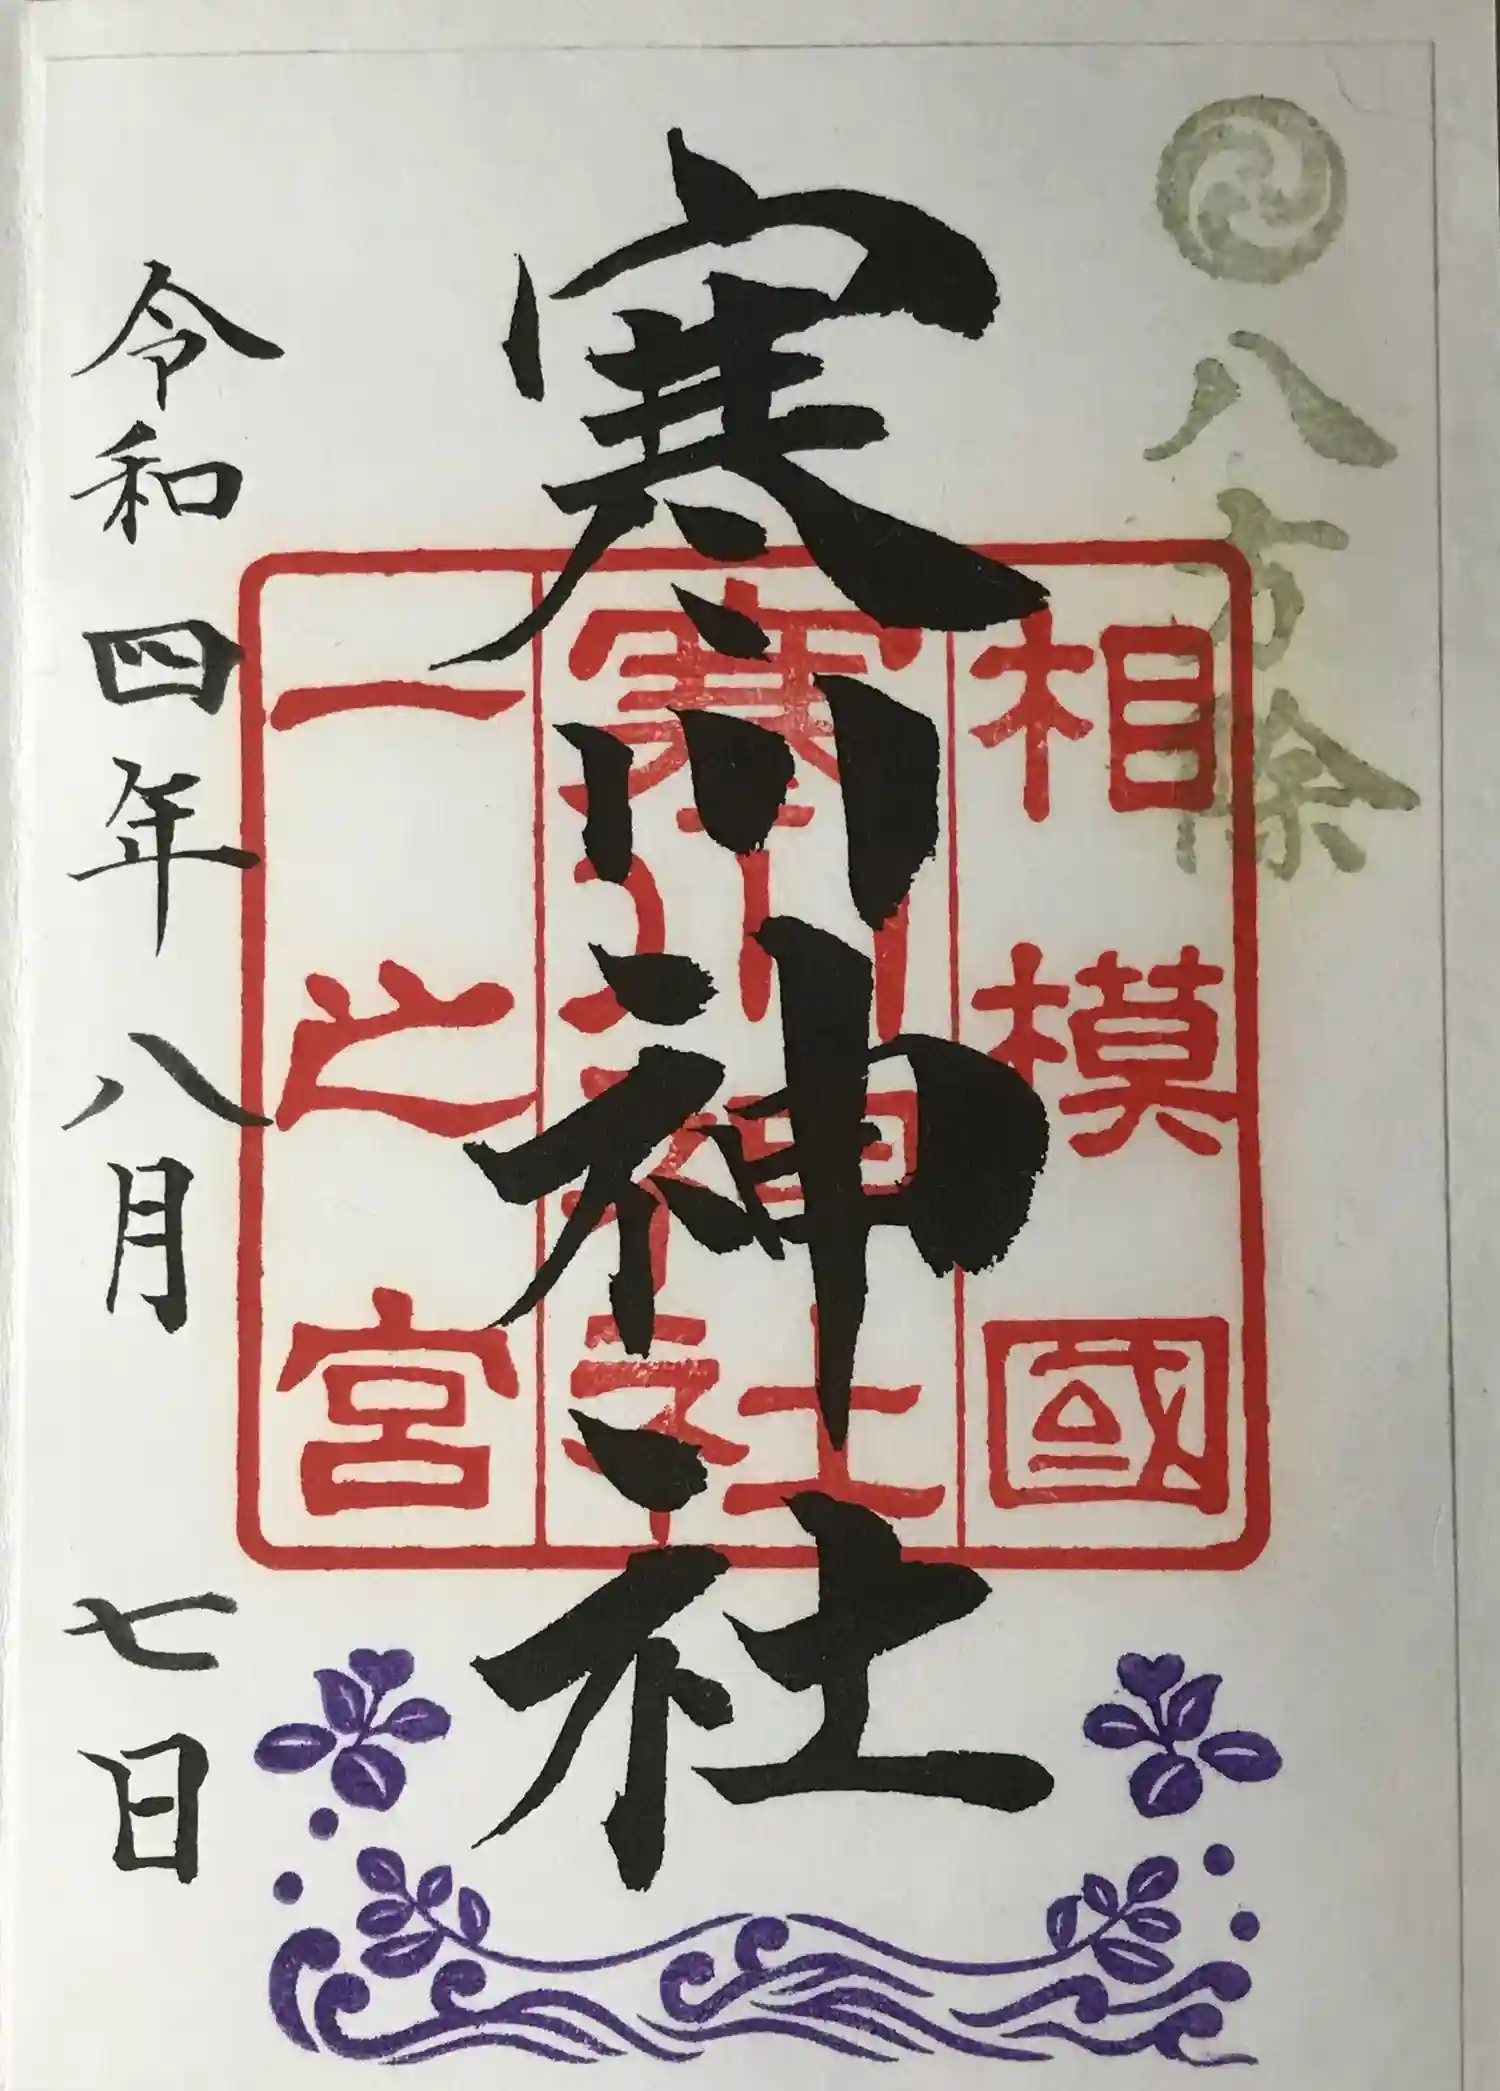 八方除
寒川神社
相模國
寒川神社
一之宮
令和四年八月七日